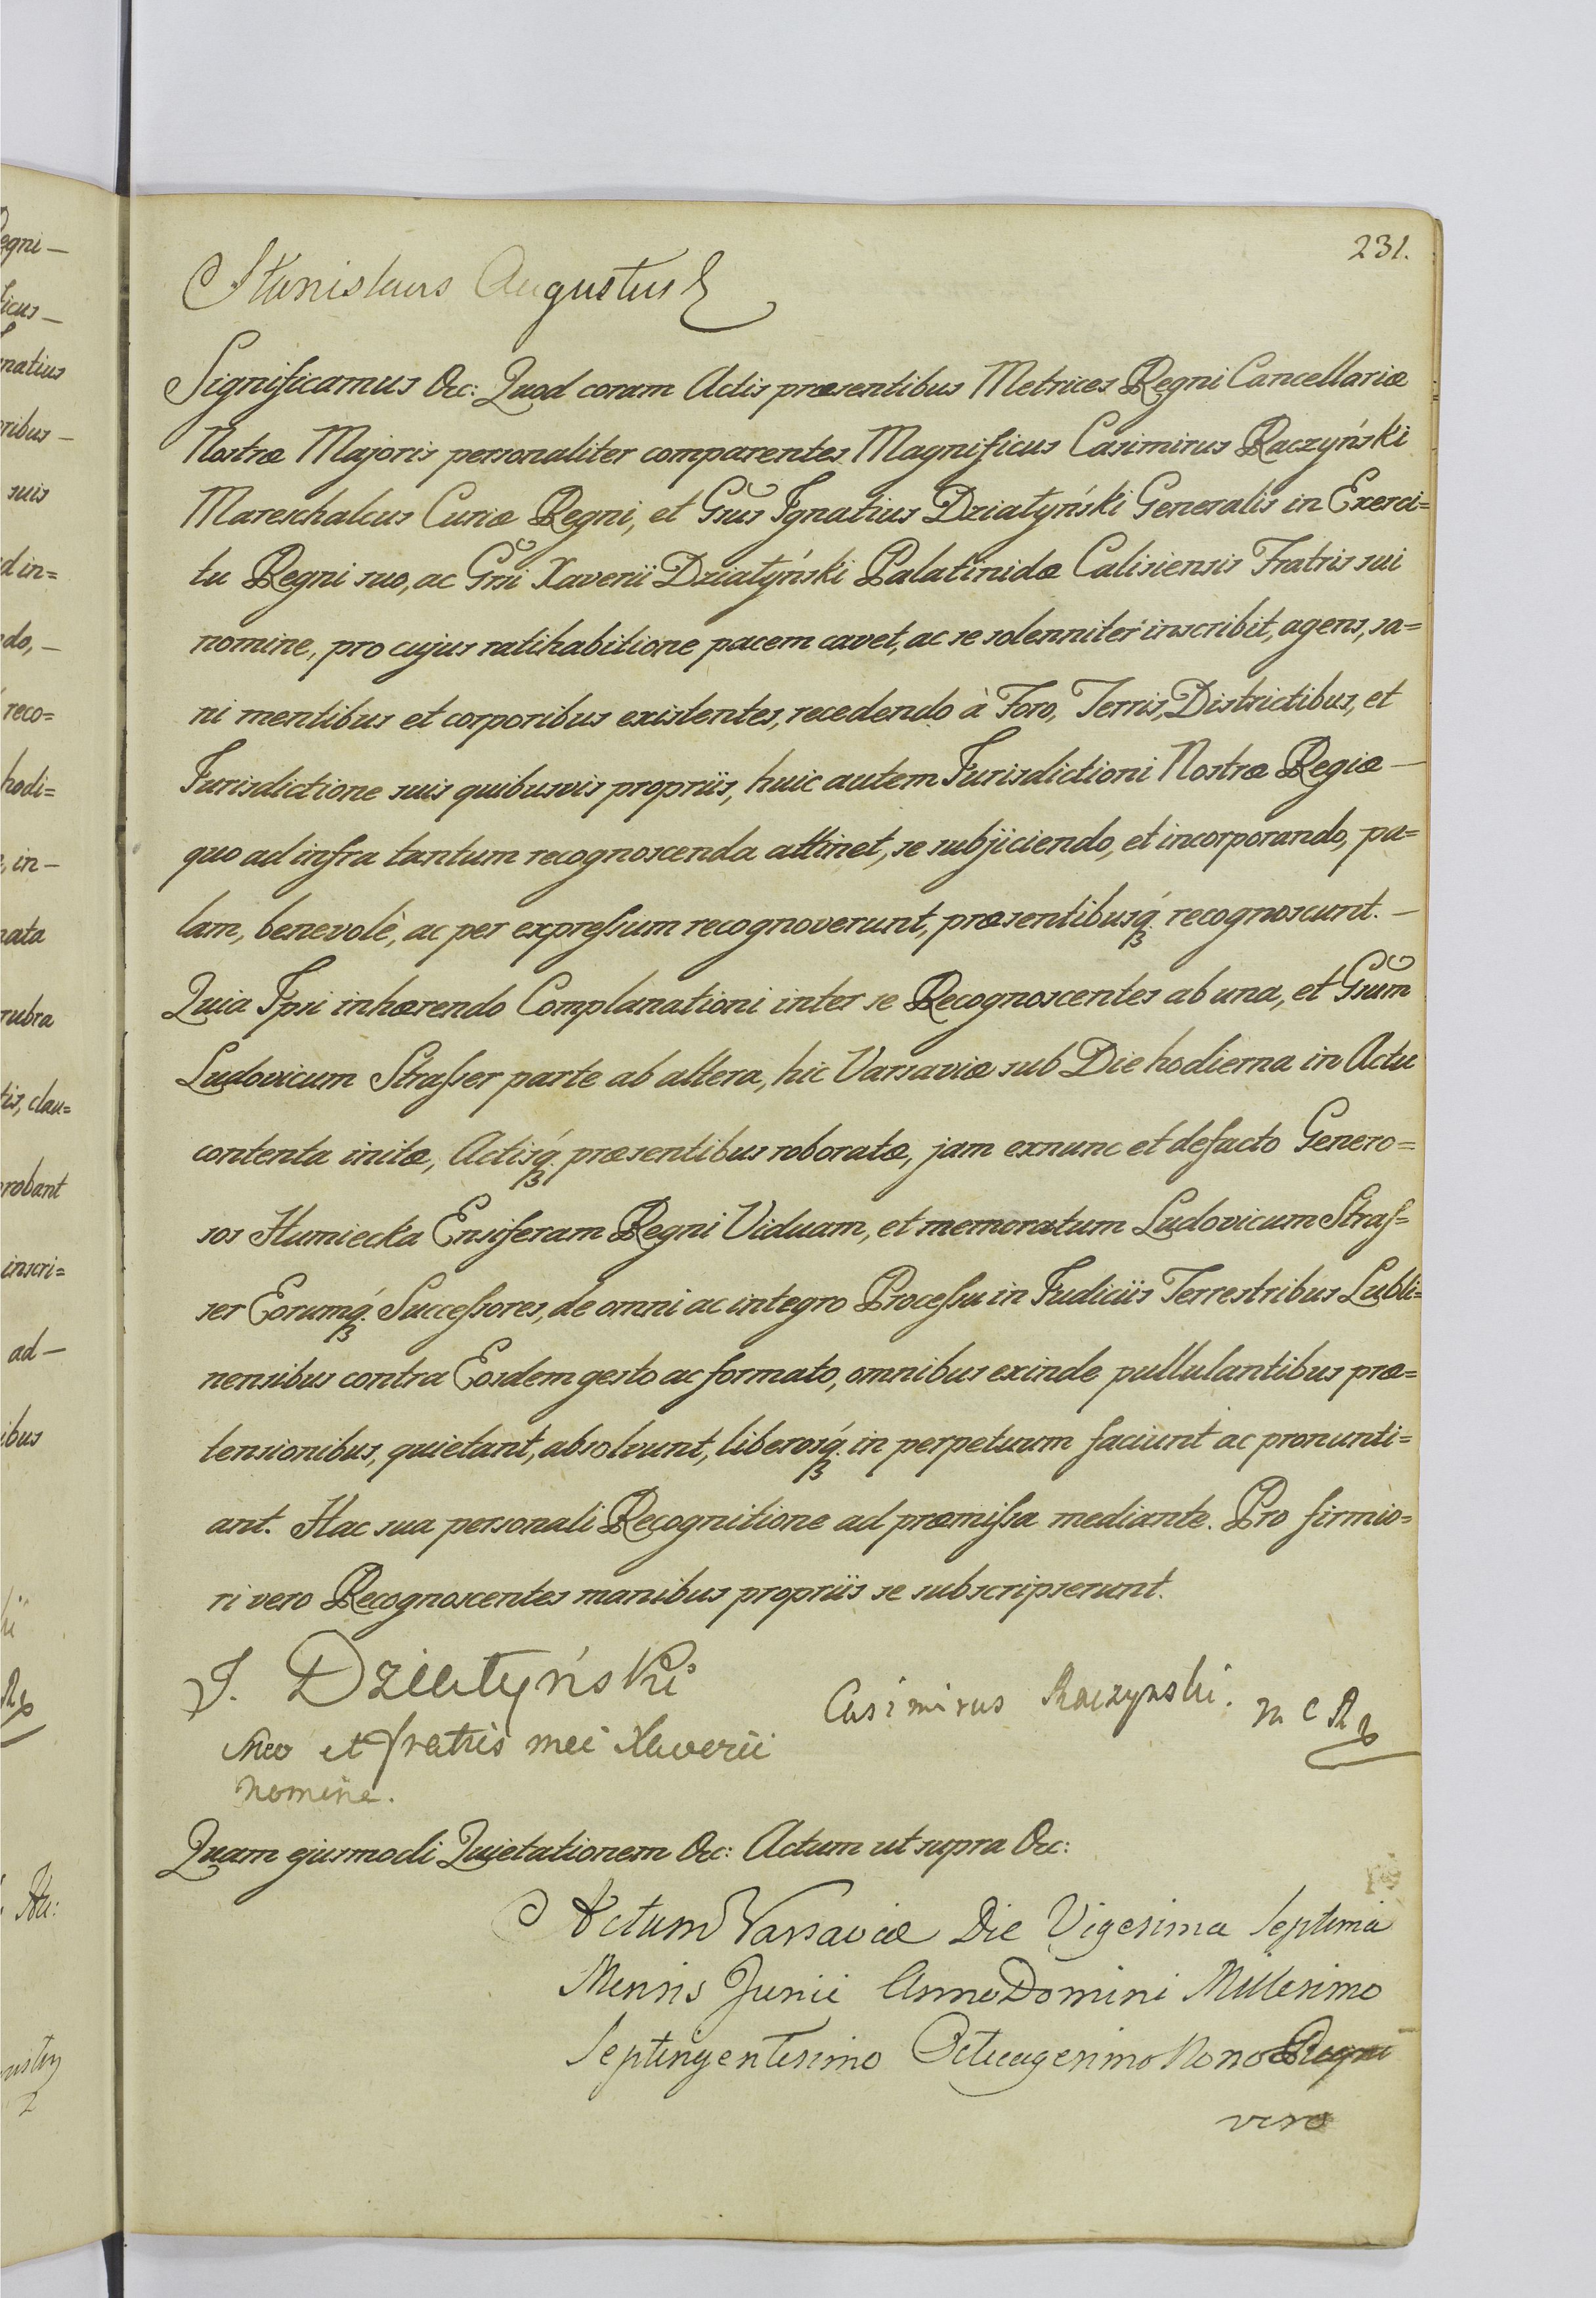 231.
Stanislaus Augustus
Significamus &c: Quod coram Actis præsentibus Metrices Regni Cancellariæ
Nostræ Majoris personaliter comparentes Magnificus Casimirus Raczyński
Mareschalcus Curiæ Regni, et Gnsus Ignatius Działyński Generalis in Exerci=
tu Regni suo, ac Gnsi Xaverii Działyński Palatinidæ Calisiensis Fratris sui
nomine, pro cujus ratihabitione pacem cavet, ac se solenniter inscribit, agens, sa=
ni mentibus et corporibus existentes, recedendo à Foro, Terris, Districtibus, et
Jurisdictione suis quibusvis propriis, huic autem Jurisdictioni Nostræ Regiæ —
quo ad infra tantum recognoscenda attinet, se subjiciendo, et incorporando, pa=
lam, benevolè, ac per expressum recognoverunt, præsentibusq́ꝫ recognoscunt. —
Quia Ipsi inhærendo Complanationi inter se Recognoscentes ab una, et Gnsum
Ludovicum Strasser parte ab altera, hic Varsaviæ sub Die hodierna in Actu
contenta initæ, Actisq́ꝫ præsentibus roboratæ, jam exnunc et defacto Genero=
sos Humiecka Ensiferam Regni Viduam, et memoratum Ludovicum Stras=
ser Eorumq́ꝫ Successores, de omni ac integro Processu in Judiciis Terrestribus Lubli=
nensibus contra Eosdem gesto ac formato, omnibus exinde pullulantibus præ=
tensionibus, quietant, absolvunt, liberosq́ꝫ in perpetuum faciunt ac pronunti=
ant. Hac sua personali Recognitione ad præmissa mediante. Pro firmio=
ri vero Recognoscentes manibus propriis se subscripserunt.
J. Działyński
meo et fratris mei Xaverii
nomine.
Casimirus Raczyński. M C R
Quam ejusmodi Quietationem &c: Actum ut supra &c:
Actum Varsaviæ Die Vigesima Septima
Mensis Junii Anno Domini Millesimo
Septingentesimo Octuagesimo Nono Regni
vero